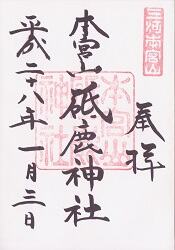 三河本宮山
奉拝
本宮山砥鹿神社
平成二十八年一月三日